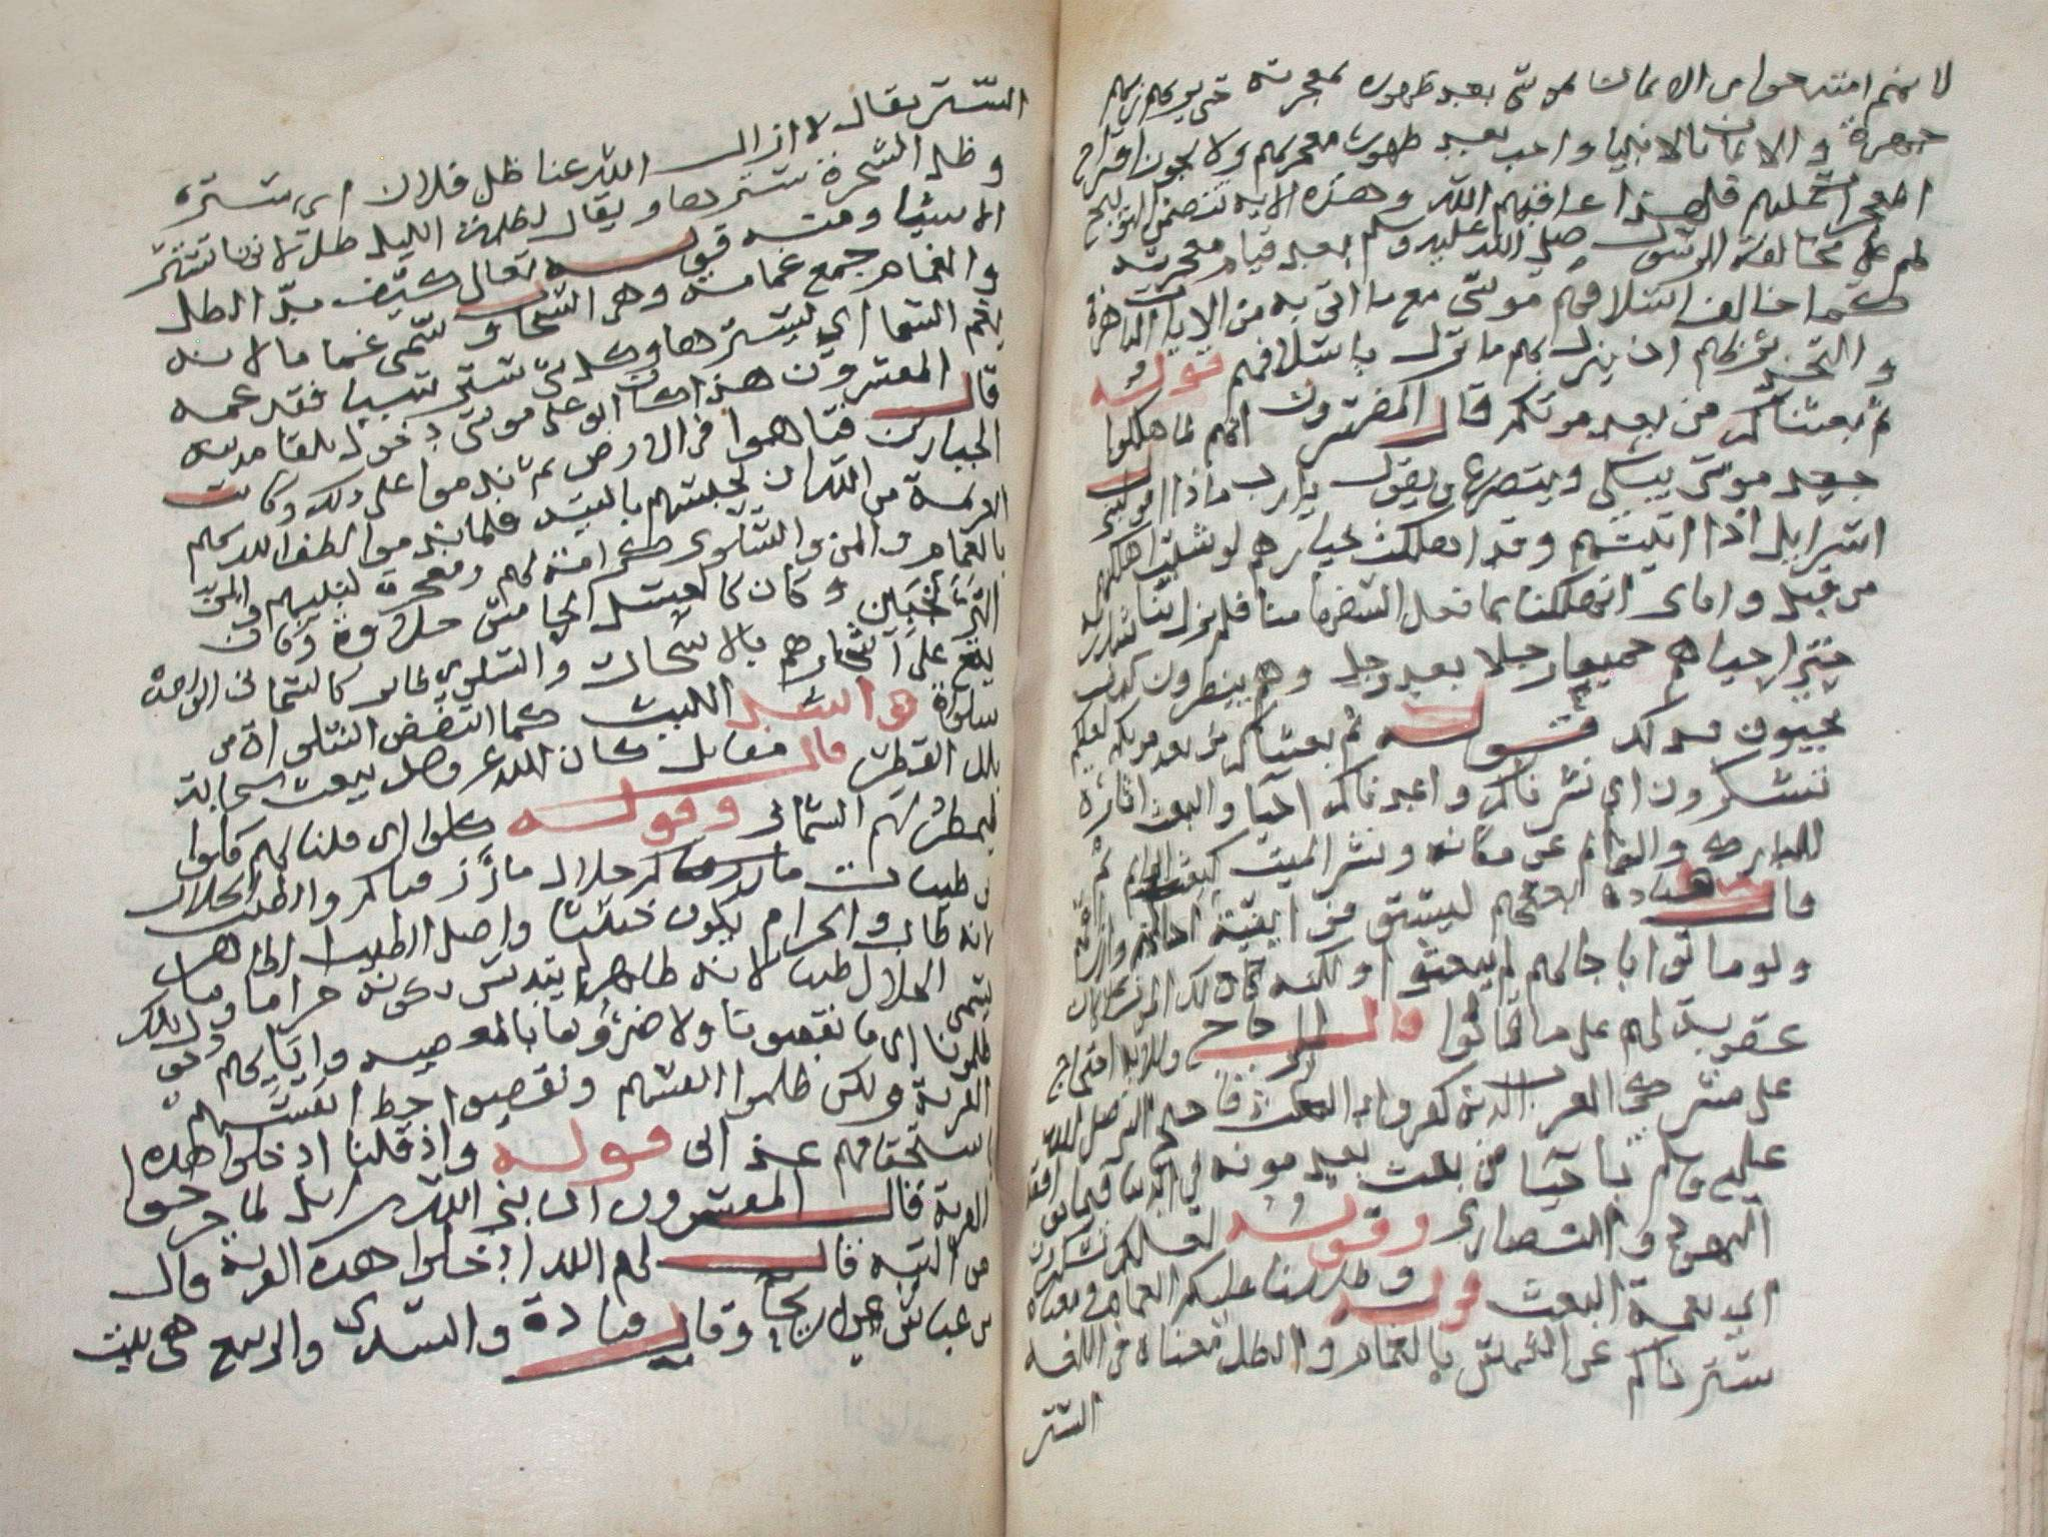 لانهم امتنعوا من الايمان بموسى بعد ظهور معجزته حتى يريهم ربهم
جهرة والايمان بالانبيا واجب بعد ظهور معجزتهم ولا يجوز اقتراح
المعجزات عليهم فلهذا عاقبهم الله وهذه الاية تتضمن التوبيخ
لهم على مخالفة الرسول صلى الله عليه وسلم بعد قيام معجزته
كما خالف اسلافهم موسى مع ما اتى به من الايات الباهرة
والتحذير لهم ان ينزل بهم ما نزل باسلافهم قوله
ثم بعثناكم من بعد موتكم قال المفسرون انهم لما هلكوا
جعل موسى يبكى ويتضرع ويقول يا رب ماذا اقول لبنى
اسرايل اذا اتيتهم وقد اهلكت خيارهم لو شئت اهلكتهم
من قبل واياى اتهلكنا بما فعل السفها منا فلم يزل يناشد ربه
حتى احياهم جميعا رجلا بعد رجل وهم ينظرون كيف
يحيون فذلك قوله ثم بعثناكم من بعد موتكم لعلكم
تشكرون اى نشرناكم واعدناكم احيا والبعث اثارة
البارك والقايم عن مكانه ونشر الميت
قال قتادة احياهم ليستوفوا بقية اجالهم وارزاقهم
ولو ماتوا باجالهم لم يبعثوا ولكنه كان ذلك الموت
عقوبة لهم على ما قالوا قال الزجاج وللاية احتجاج
على مشركى العرب الذين كفروا بالبعث فاحتج النبي صلى الله
عليه وسلم باحيا من بعث بعد موته فى الدنيا فيما يوافقه
اليهود والنصارى وقوله لعلكم تشكرون
اى نعمة البعث قوله وظللنا عليكم الغمام ومعناه
سترناكم عن الشمس بالغمام والظل معناه فى اللغه
الستر
الستر يقال لا ازال الله عنا ظل فلان اى ستره
وظل الشجرة سترها ويقال لظلمة الليل ظل لانها تستر
الاشيا ومنه قوله تعالى كيف مد الظل
والغمام جمع غمامة وهو السحاب وسمى غماما لانه
يغم السما اى يسترها وكل شى ستر شيا فقد غمه
قال المفسرون هذا كان ابوا على موسى دخول بلقا مدينة
الجبارين فتاهوا فى الارض ثم ندموا على ذلك وكانت
العزيمة من الله ان يحبسهم بالتيه فلما ندموا الطف الله بهم
بالغمام والمن والسلوى كرامة لهم ومعجزة لنبيهم والمن
الترنجبين وكان كالعسل الجامس حلاوة وكان
يقع على اشجارهم بالاسحار والسلوى طاير كالسمانى الواحدة
سلواة وانشد الليث كما انتفض السلواة من
بلل القطر قال مقاتل كان الله عز وجل يبعث سحابة
فيمطر لهم السمانى وقوله كلوا اى قلنا لهم كلوا
من طيبات ما رزقناكم حلال ما رزقناكم والطيب الحلال
لانه طاب والحرام يكون خبيثا واصل الطيب الطاهر
تسمى الحلال طيبا لانه طاهر لم يتدنس بكونه حراما وما
ظلمونا اى ما نقصونا ولا ضرونا بالمعصيه وابايهم دخول
القرية ولكن ظلموا انفسهم ونقصوا حظ انفسهم
باستحقاقهم عذابى قوله واذ قلنا ادخلوا هذه
القرية قال المفسرون ان بنى اسرايل لما خرجوا
من التيه قال لهم الله ادخلوا هذه القرية قال
بن عباس هى اريحا وقال قتادة والسدى والربيع هى بيت